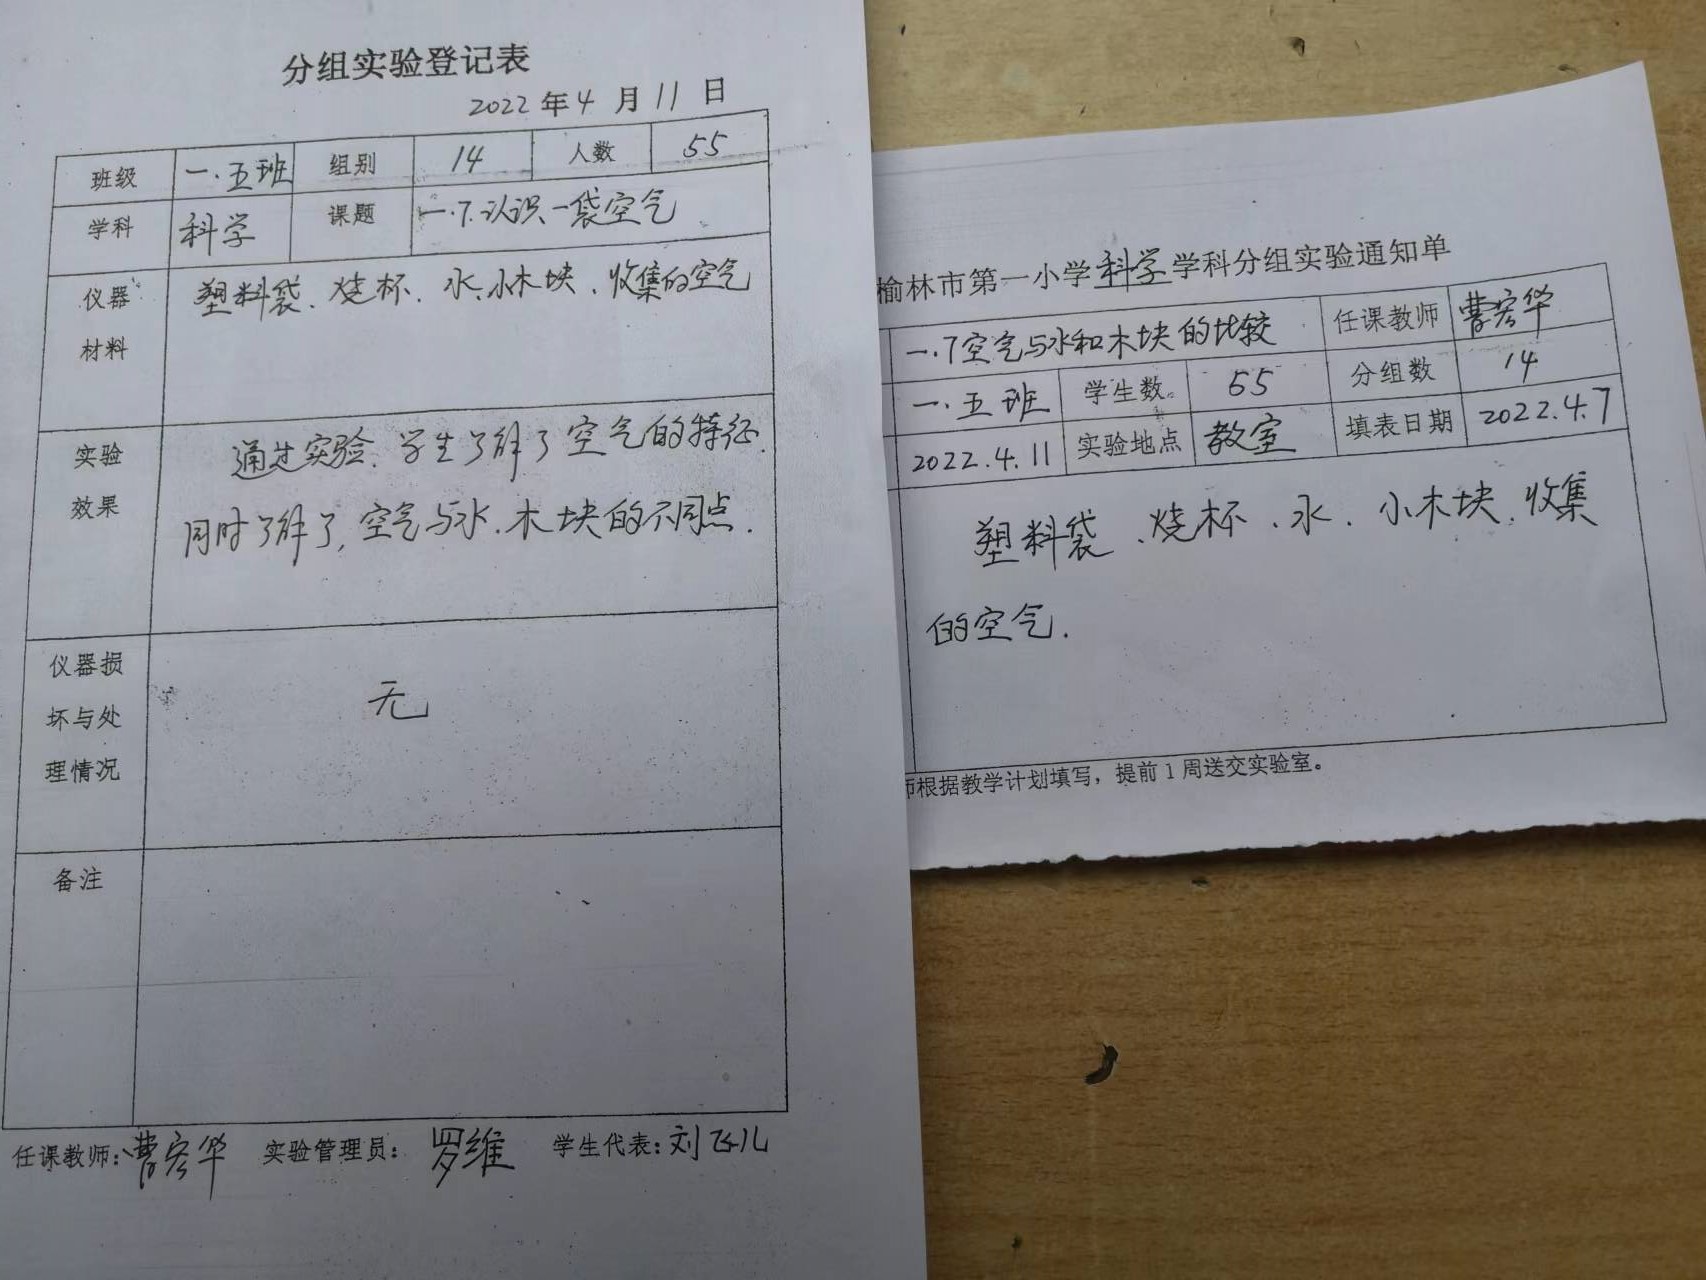 分组实验登记表
2022年4月11日
班级 一.五班 组别 14 人数 55
学科 科学 课题 一.7.认识一袋空气
仪器材料 塑料袋、烧杯、水、小木块、收集的空气
实验效果 通过实验、学生了解了空气的特征.
同时了解了,空气与水、木块的不同点.
仪器损坏与处理情况 无
备注
任课教师:曹宏华 实验管理员:罗维 学生代表:刘飞儿
榆林市第一小学科学学科分组实验通知单
一.7空气与水和木块的比较 任课教师 曹宏华
一.五班 学生数 55 分组数 14
2022.4.11 实验地点 教室 填表日期 2022.4.7
塑料袋、烧杯、水、小木块、收集
的空气.
师根据教学计划填写，提前1周送交实验室。